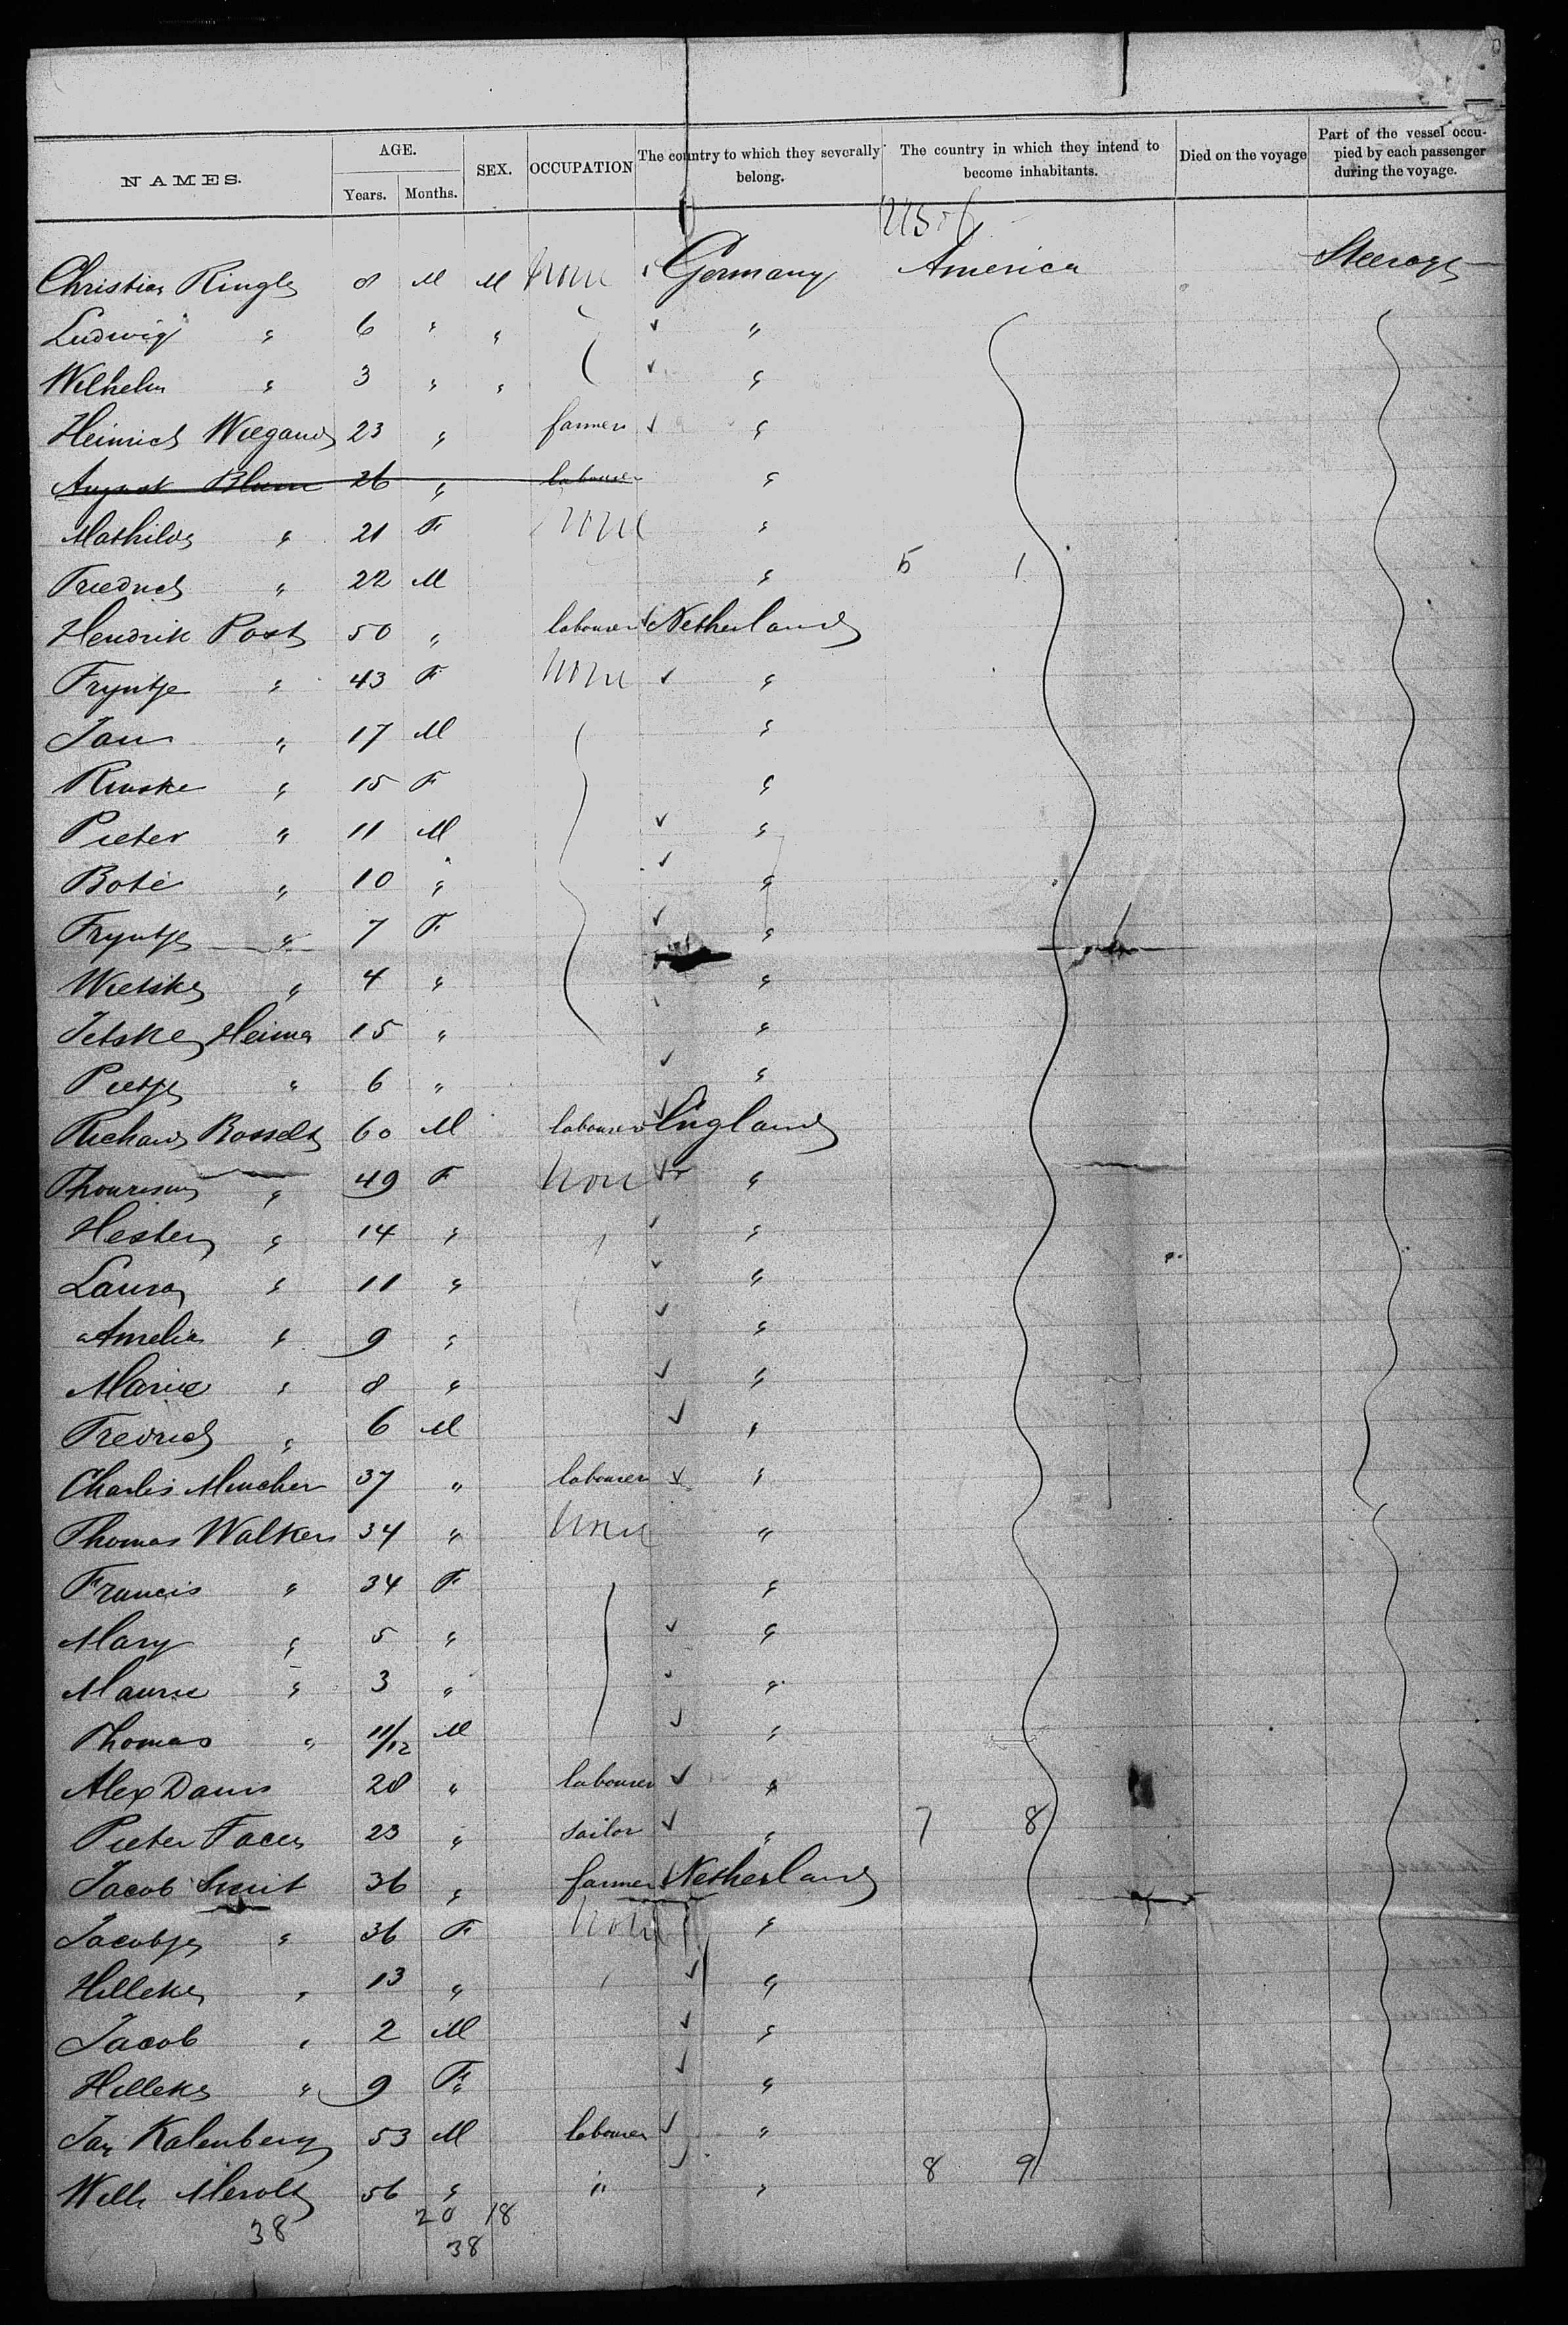 NAMES. AGE. Years. Months. SEX. OCCUPATION The country to which they severally belong. The country in which they intend to become inhabitants. Died on the voyage Part of the vessel occupied by each passenger during the voyage.
Christian Ringle 8 M M None Germany America Steerage
Ludwig " 6 " " "
Wilhelm " 3 " " "
Heinrich Wiegand 23 " farmer "
August Blum 26 " labourer "
Mathilde " 21 F None "
Friedrich " 22 M " 5 1
Hendrik Post 50 " labourer Netherland
Tryntje " 43 F None "
Jan " 17 M "
Rinske " 15 F "
Pieter " 11 M "
Bote " 10 " "
Tryntje " 7 F "
Wietske " 4 " "
Jetske Heima 15 " "
Pietje " 6 " "
Richard 60 M labourer England
" 49 F None "
Hester " 14 " "
Laura " 11 " "
Amelia " 9 " "
Marie " 8 " "
Fredrich " 6 M "
Charles Muncher 37 " labourer "
Thomas Walker 34 " None "
Francis " 34 F "
Mary " 5 " "
Maurie " 3 " "
Thomas " 11/12 M "
Alex Davis 28 " labourer "
Pieter 23 " sailor " 7 8
Jacob Smit 36 " farmer Netherland
Jacobje " 36 F None "
Hilleke " 13 " "
Jacob " 2 M "
Hilleke " 9 F "
Jan Kalenberg 53 M labourer "
Will 56 " " " 8 9
38 20 18
38